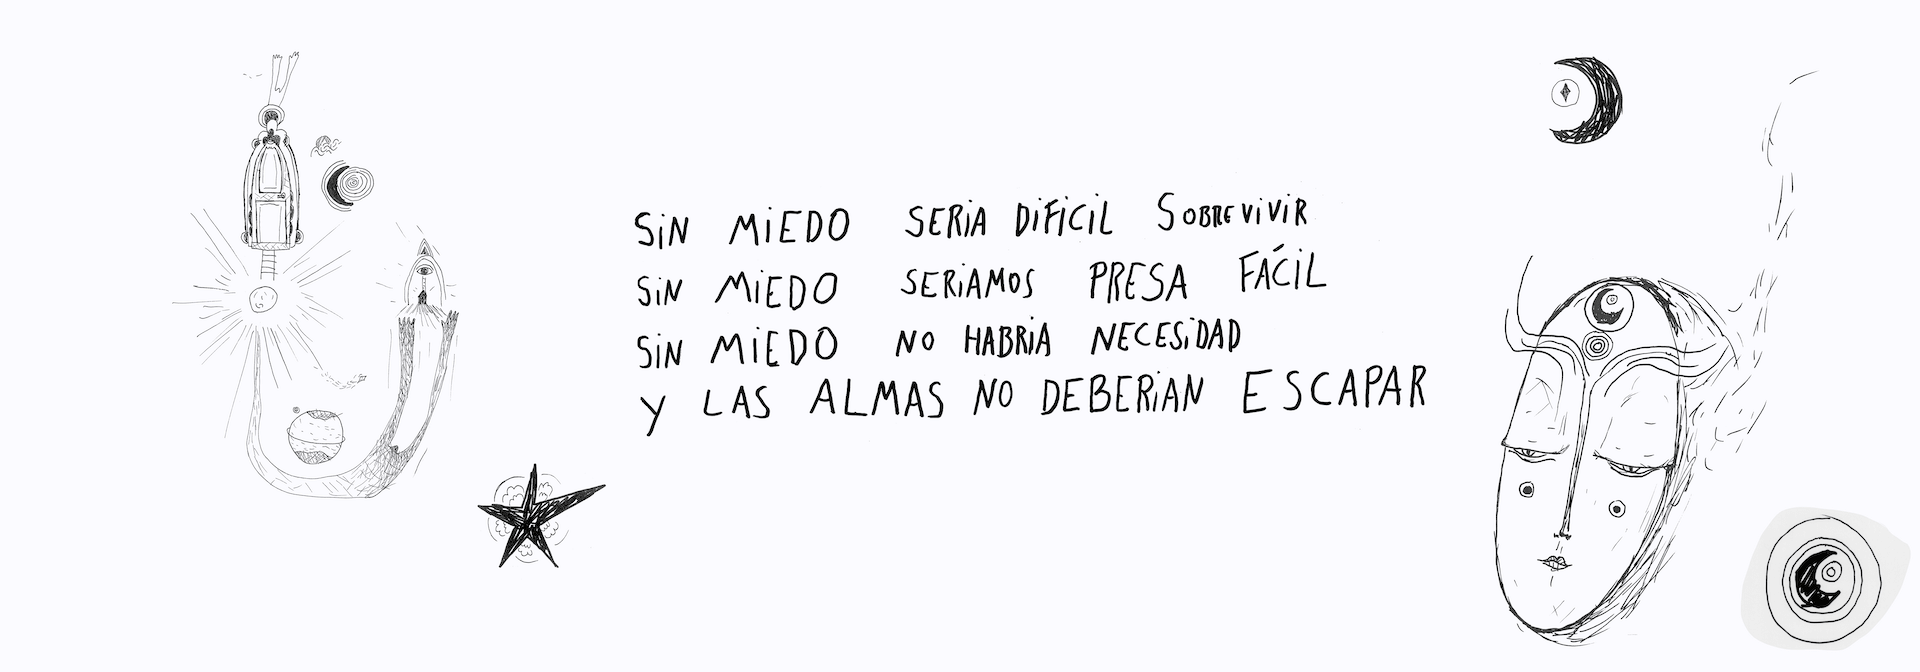 SiN MiEDO SERiA DiFiCiL SOBREViViR
SiN MiEDO SERiAMOS PRESA FÁCiL
SiN MiEDO NO HABRiA NECESiDAD
Y LAS ALMAS NO DEBERiAN ESCAPAR